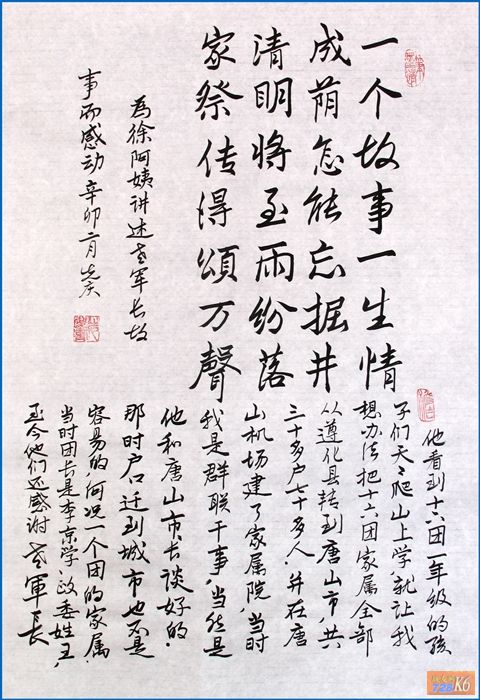 一个故事一生情
成荫怎能忘掘井
清明将至雨纷落
家祭传得頌万聲
為徐阿姨讲述老军长故
事而感动辛卯二月
他看到十六团一年级的孩
子们天天爬山上学,就让我
想办法把十六团家属全部
从遵化县转到唐山市,共
三十多户七十多人,并在唐
山机场建了家属院,当时
我是群联干事,当然是
他和唐山市长谈好的.
那时户口迁到城市也不是
容易的,何况一个团的家属.
当时团长是李京学,政委姓王,
至今他们还感谢老軍長
728K6